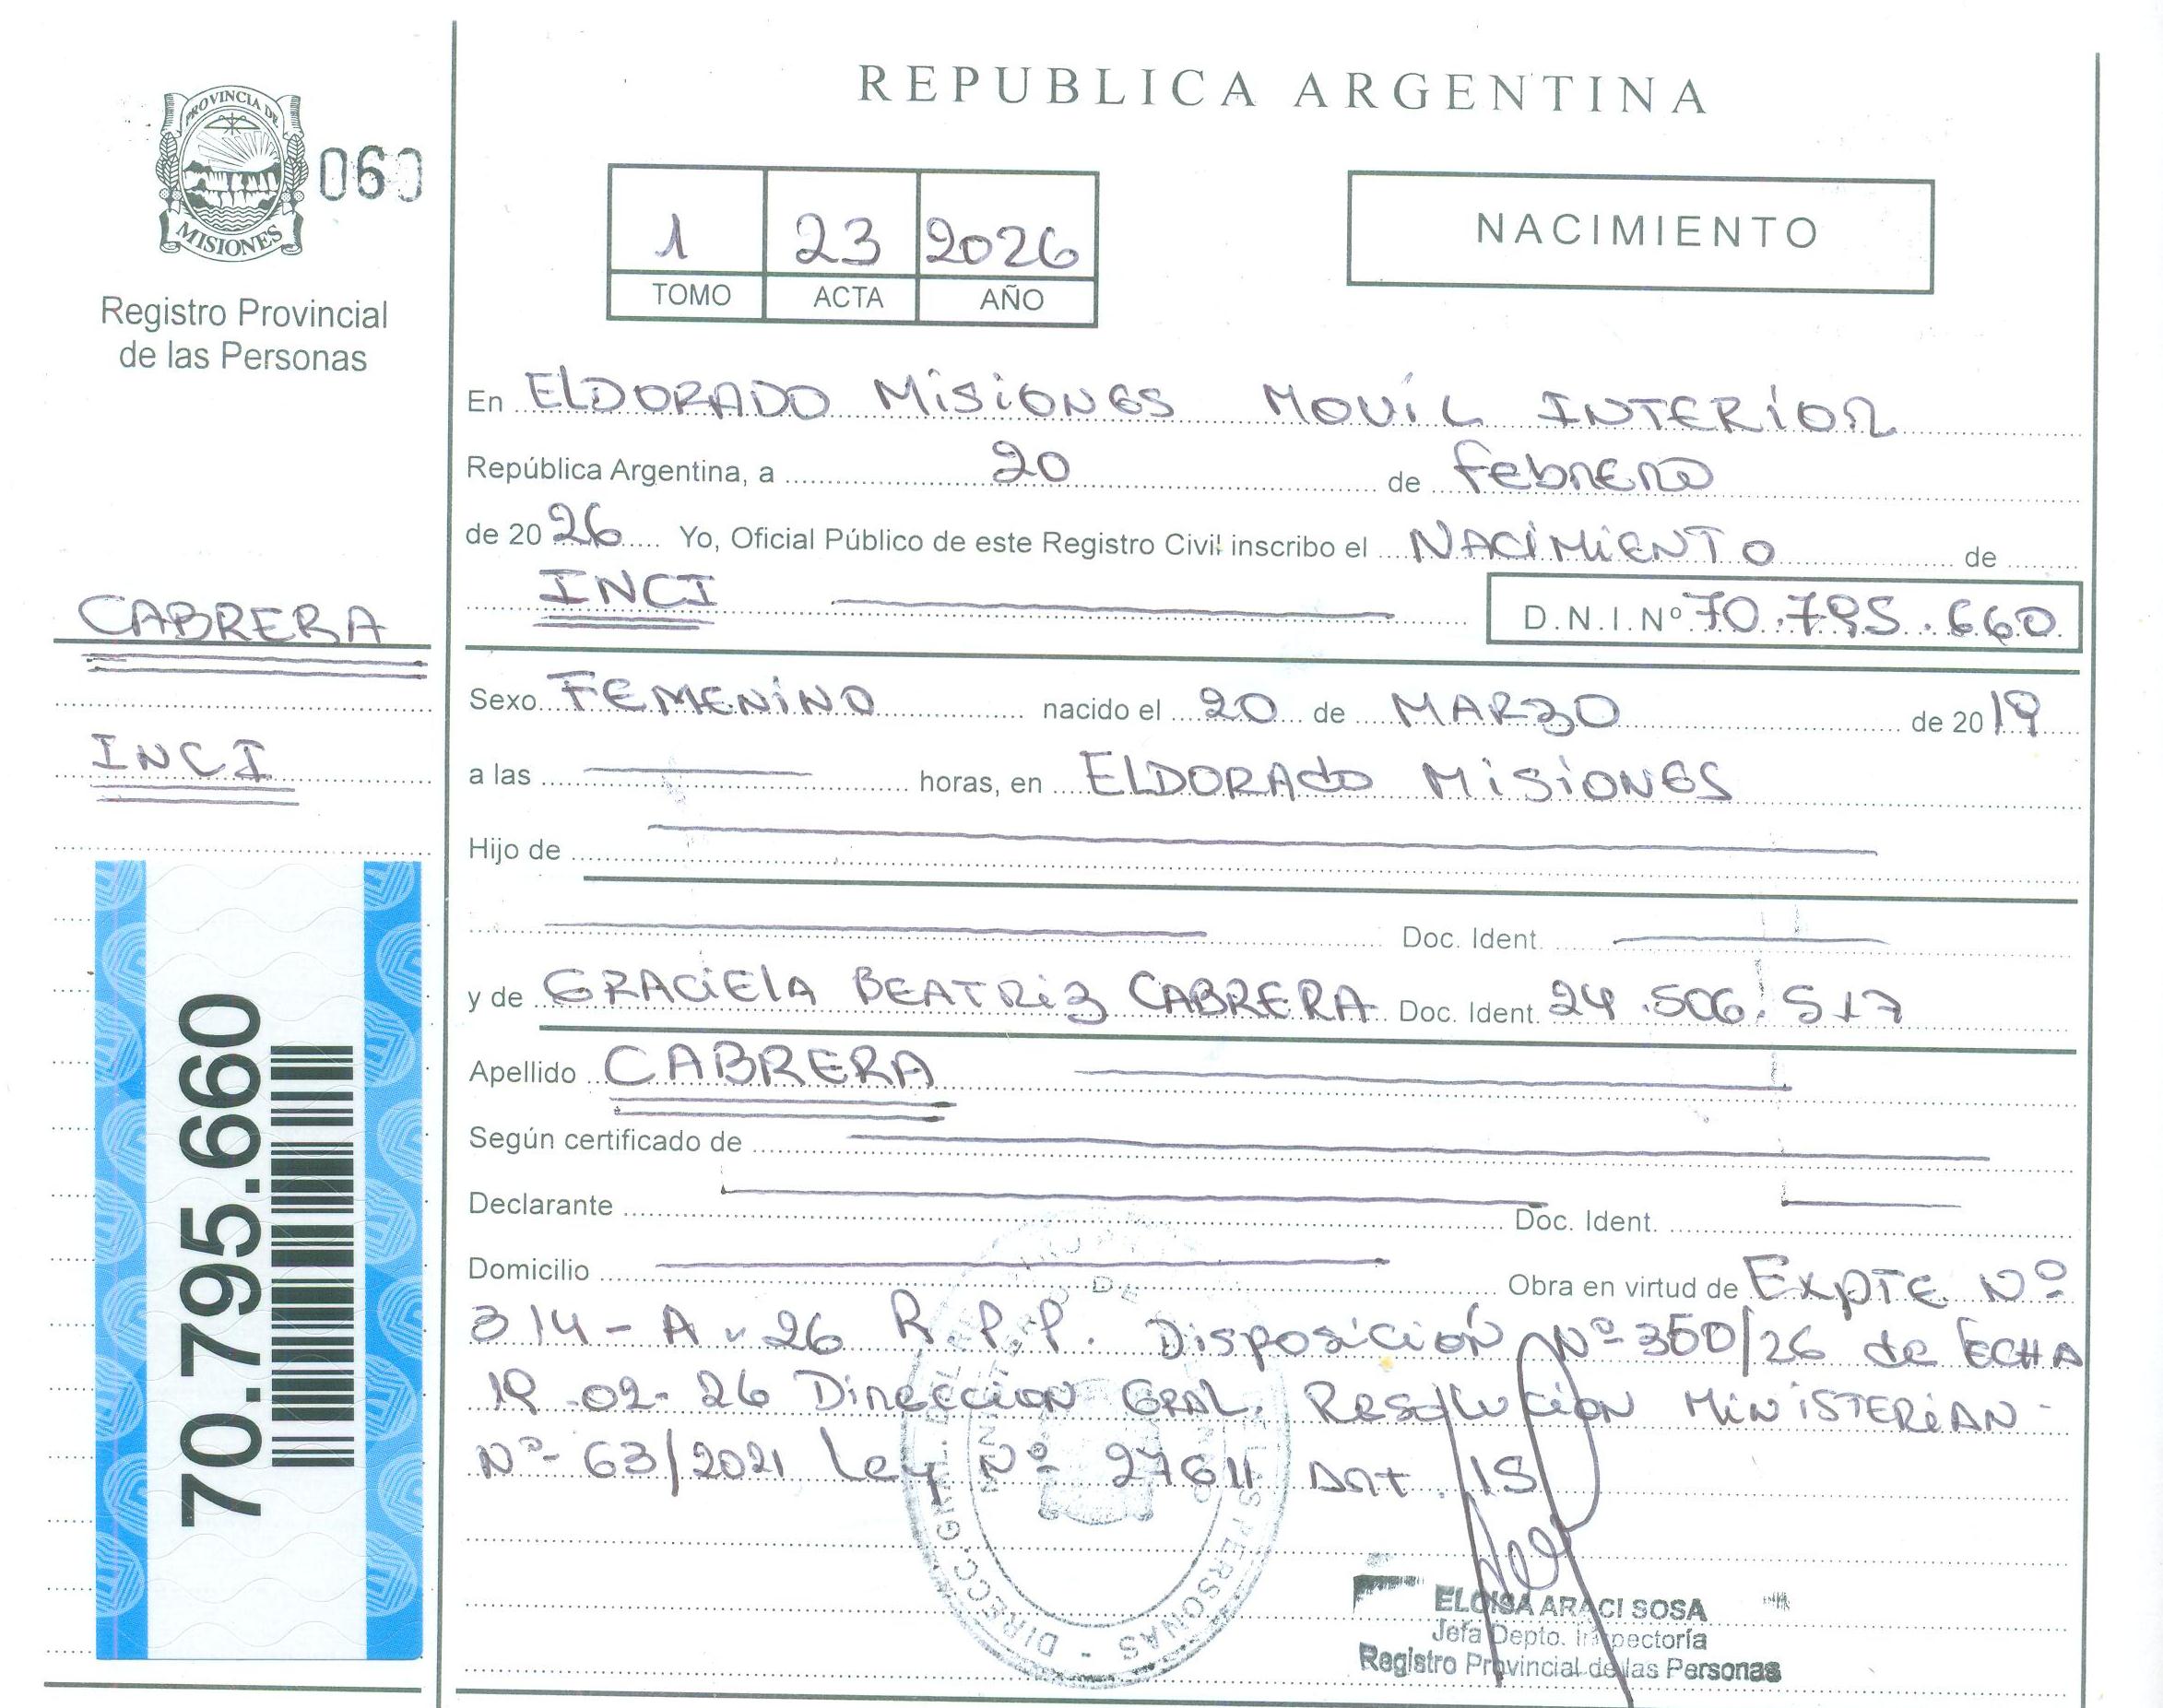 REPUBLICA ARGENTINA
PROVINCIA DE
MISIONES
060
Registro Provincial
de las Personas
1 23 2026
TOMO ACTA AÑO
NACIMIENTO
En ELDORADO MISIONES MOVIL INTERIOR
República Argentina, a 20 de Febrero
de 2026 Yo, Oficial Público de este Registro Civil inscribo el NACIMIENTO de
INCI D.N.I.Nº 70.795.660
CABRERA
INCI
70.795.660
Sexo FEMENINO nacido el 20 de MARZO de 2019
a las horas, en ELDORADO MISIONES
Hijo de
Doc. Ident.
y de GRACIELA BEATRIZ CABRERA Doc. Ident. 24.506.517
Apellido CABRERA
Según certificado de
Declarante Doc. Ident.
Domicilio Obra en virtud de EXPTE Nº
314-A-26 R.P.P. Disposición Nº 350/26 de FECHA
19-02-26 Direccion GRAL. Resolucion MINISTERIAN
Nº 63/2021 Ley Nº 27611 Art. 15
DIRECC. GRAL. DEL PERSONAS
ELOISA ARACI SOSA
Jefa Depto. Inspectoría
Registro Provincial de las Personas